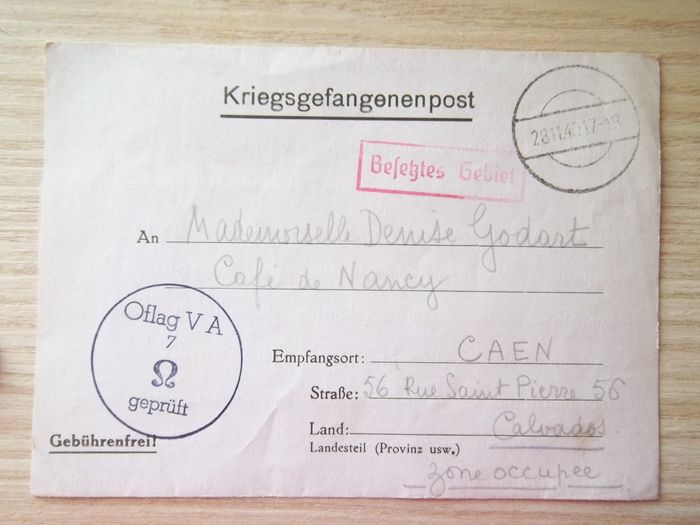 Kriegsgefangenenpost
28.11.40.17-18
Besetztes Gebiet
An Mademoiselle Denise Godart
Café de Nancy
Oflag V A
7
geprüft
Empfangsort: CAEN
Straße: 56 Rue Saint Pierre 56
Land: Calvados
Landesteil (Provinz usw.)
zone occupée
Gebührenfrei!